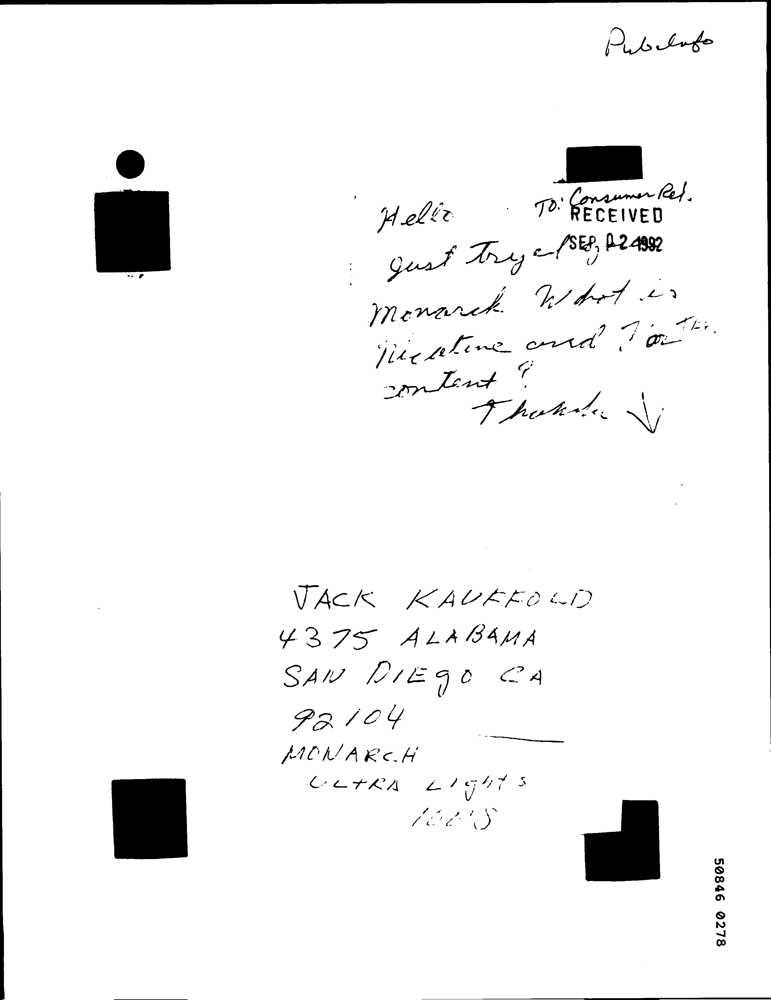 Pub. Info
To: Consumer Rel.
RECEIVED
SEP 02 1992
Hello
Just tryed
Monarch What is
Nicotine and Tar
content ?
JACK KAUFFOLD
4375 ALABAMA
SAN DIEgO CA
92104
MONARCH
ULTRA LIgHTS
100'S
50846 0278